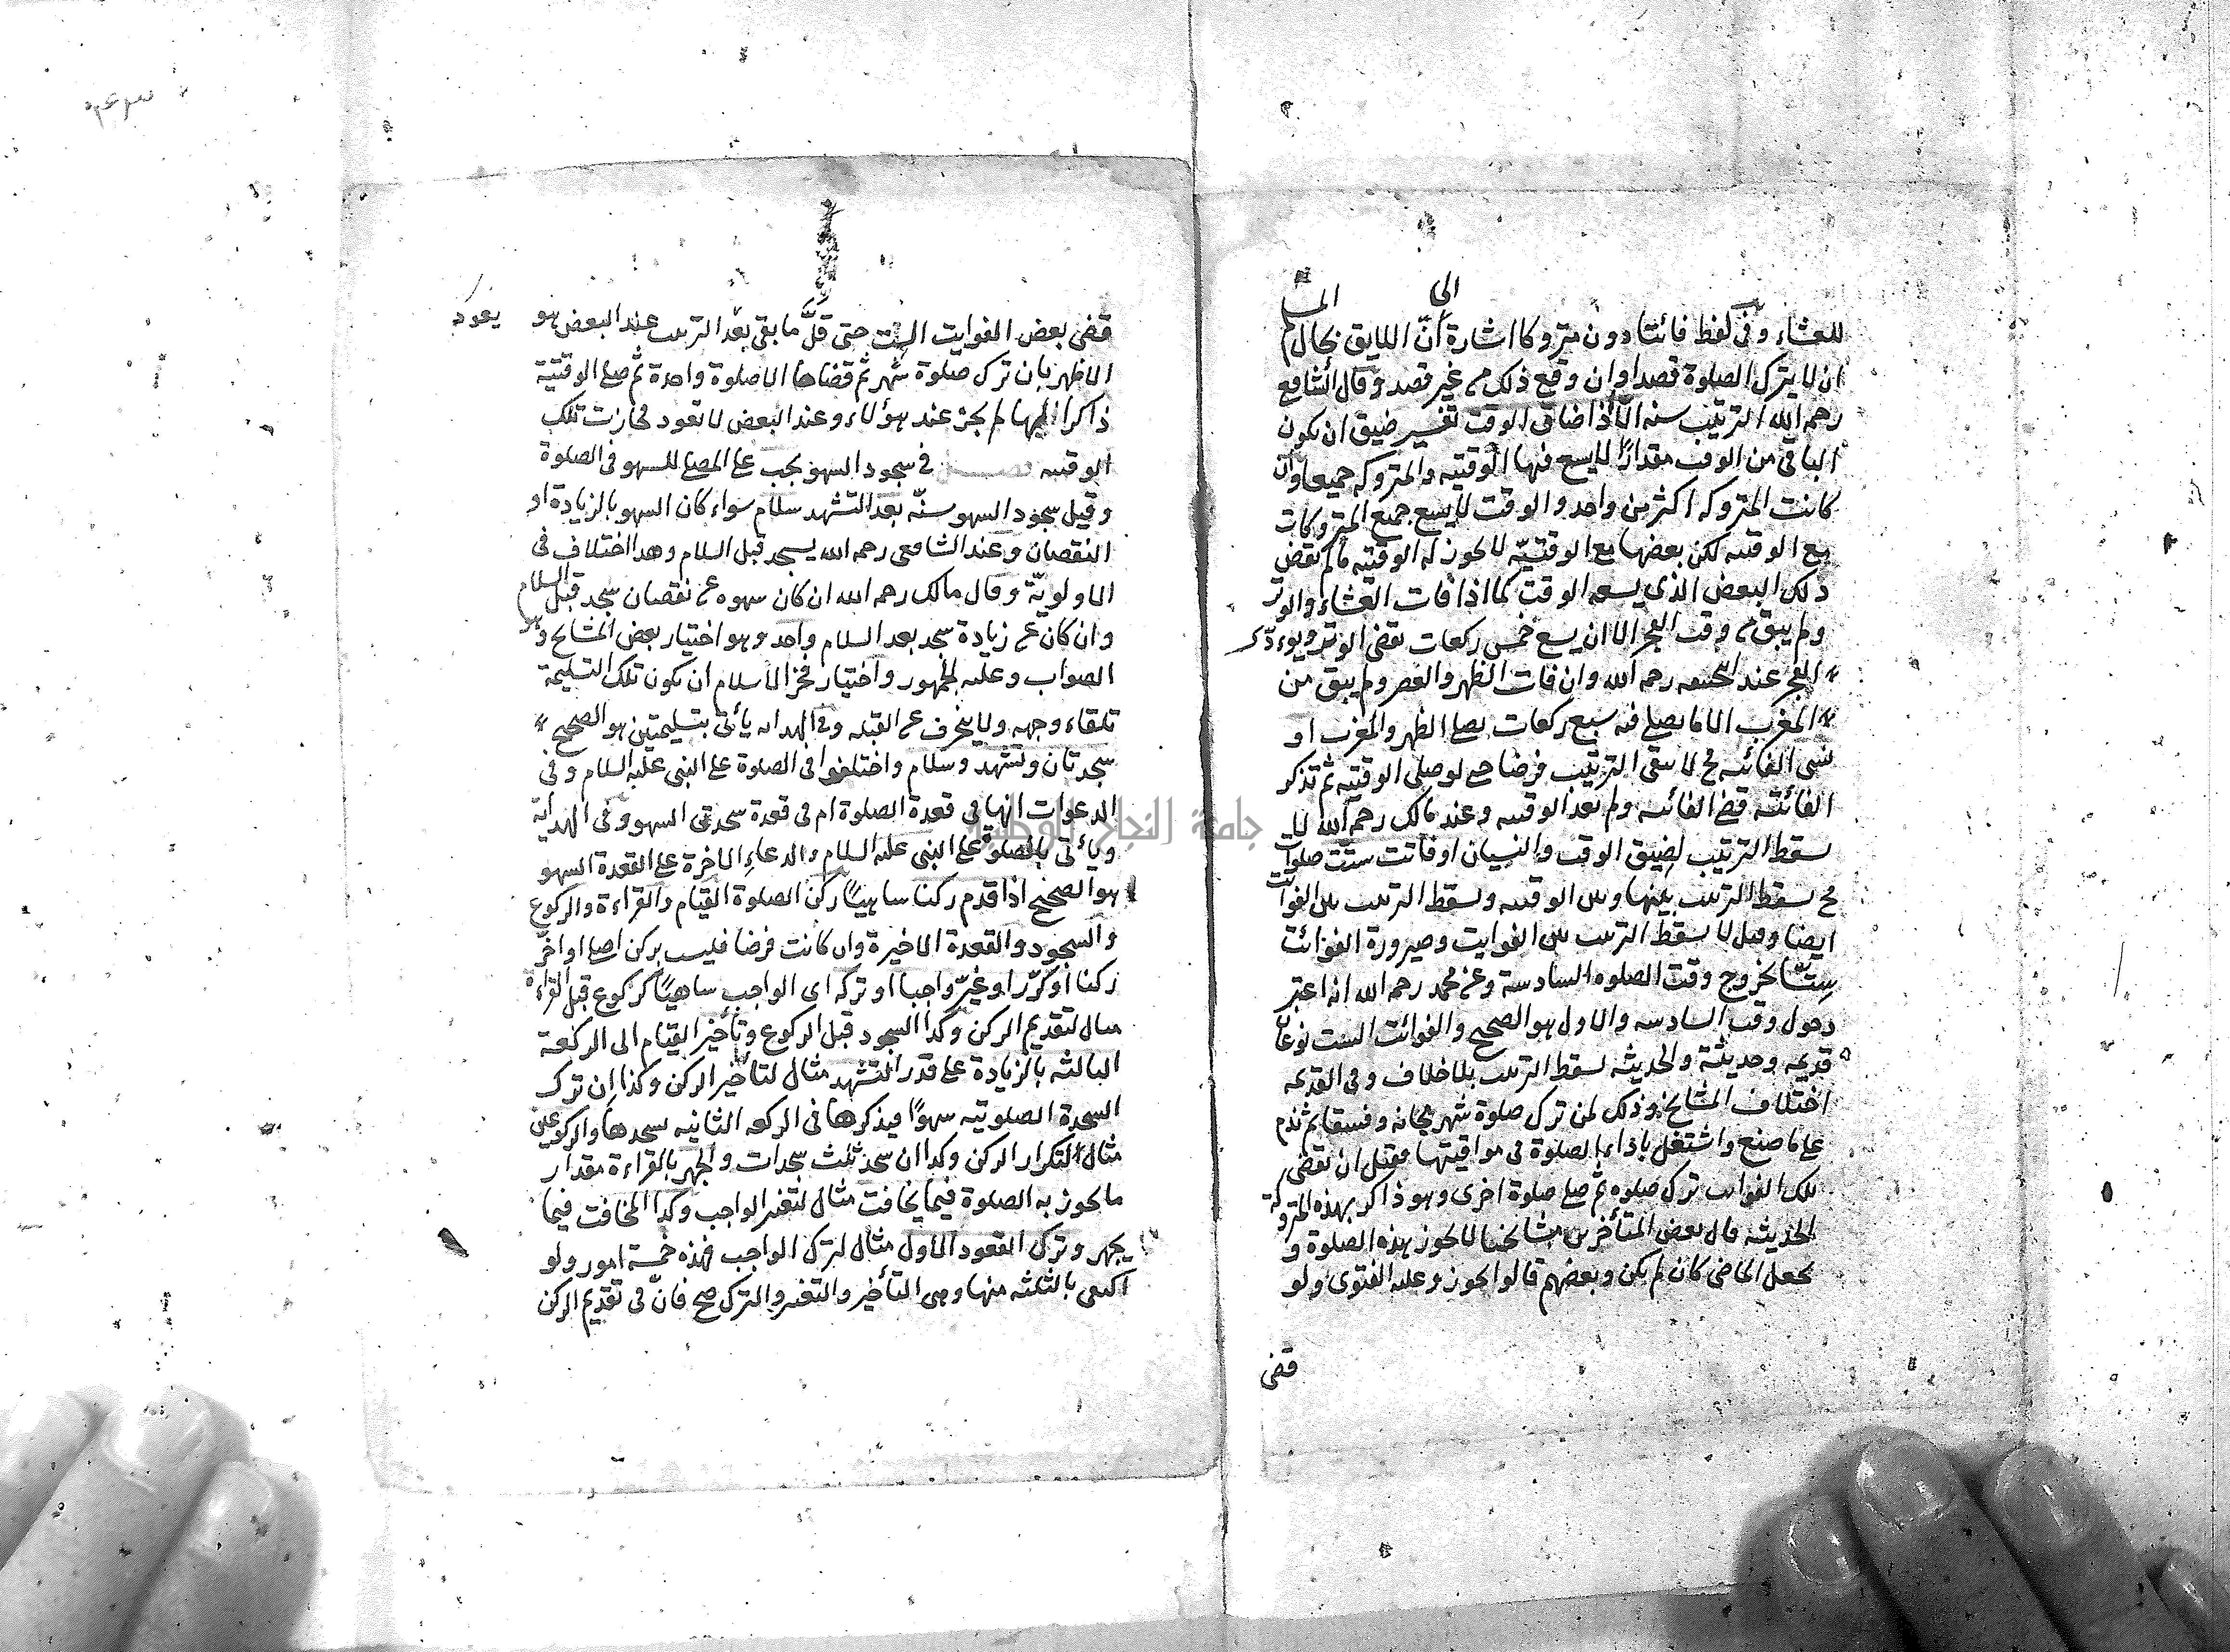 للعشاء وفى لفظ فائتا دون متروكا اشارة الى انّ اللايق بحال المسلم
ان لا يترك الصلوة قصدا وان وقع ذلك من غير قصد وقال الشافعى
رحمه الله الترتيب سنه الّا اذا ضاق الوقت تفسير ضيق ان يكون
الباقى من الوقت مقدارًا لا يسع فيها الوقتيه والمتروكه جميعا وان
كانت المتروكه اكثر من واحد والوقت لا يسع جميع المتروكات
مع الوقتيه لكن بعضها مع الوقتيّه لا يجوز له الوقتيه ما لم يقض
ذلك البعض الذى يسعه الوقت كما اذا فات العشاء والوتر
ولم يبق من وقت الفجر الا ان يسع خمس ركعات يقضى الوتر ويؤدّى
الفجر عند ابى حنيفه رحمه الله وان فات الظهر والعصر ولم يبق من
المغرب الا ما يصلى فيه سبع ركعات يصلى الظهر والمغرب او
نسى الفائته فح لا يبقى الترتيب فرضا حتى لو صلى الوقتيه ثم تذكر
الفائته قضى الفائته ولم يعد الوقتيه وعند مالك رحمه الله لا
يسقط الترتيب لضيق الوقت والنسيان او فاتت ستّت صلوات
فح يسقط الترتيب بينها وبين الوقتيه ويسقط الترتيب بين الفوائت
ايضا وقيل لا يسقط الترتيب بين الفوايت وصيرورة الفوائت
ستّا بخروج وقت الصلوه السادسة وعن محمد رحمه الله انه اعتبر
دخول وقت السادسه والاول هو الصحيح والفوائت الست نوعان
قديمه وحديثة والحديثه يسقط الترتيب بلا خلاف وفى القديمه
اختلاف المشايخ وذلك لمن ترك صلوة شهر مجانه وفسقا ثم ندم
على ما صنع واشتغل باداء الصلوة فى مواقيتها فقبل ان يقضى
تلك الفوايت ترك صلوه ثم صلى صلوة اخرى وهو ذاكر بهذه المتروكة
الحديثه قال بعض المتأخرين مشايخنا لا يجوز هذه الصلوة و
يجعل الماضى كان لم يكن وبعضهم قالوا يجوز وعليه الفتوى ولو
قضى
قضى بعض الفوايت الست حتى قلّ ما بقى يعد الترتيب عند البعض هو
يعود
الاظهر بان ترك صلوة شهر ثم قضاها الا صلوة واحدة ثم صلى الوقتية
ذاكرا اليها لم يجز عند هؤلاء وعند البعض لا تعود فجازت تلك
الوقتيه فى سجود السهو يجب على المصلى للسهو فى الصلوة
وقيل سجود السهو سنّه بعد التشهد سلام سواء كان السهو بالزيادة او
النقصان وعند الشافعى رحمه الله يسجد قبل السلام وهذا اختلاف فى
الاولويّة وقال مالك رحمه الله ان كان سهوه عن نقصان سجد قبل السلام
وان كان عن زيادة سجد بعد السلام واحد وهو اختيار بعض المشايخ وهو
الصواب وعليه الجمهور واختيار فخر الاسلام ان يكون تلك التسليمة
تلقاء وجهه ولا ينحرف عن القبله وفى الهدايه يأتى بتسليمتين هو الصحيح
سجدتان وتشهد وسلام واختلفوا فى الصلوة على النبى عليه السلام وفى
الدعوات انها فى قعدة الصلوة ام فى قعدة سجدتى السهو وفى الهداية
ويأتى بالصلوة على النبى عليه السلام والدعاء الاخرة على القعدة السهو
هو الصحيح اذا قدم ركنا ساهيًا ركن الصلوة القيام والقراءة والركوع
والسجود والقعدة الاخيرة وان كانت فرضا فليس بركن اصلى او اخّر
ركنا او كرّر او غيّر واجبا او تركه اى الواجب ساهيًا كركوع قبل القراءة
مثال لتقديم الركن وكذا السجود قبل الركوع وتأخير القيام الى الركعة
الثالثه بالزيادة على قدر التشهد مثال لتأخير الركن وكذا ان ترك
السجدة الصلوتيه سهوًا فيذكرها فى الركعه الثانيه يسجدها والركوعين
مثال التكرار الركن وكذا ان سجد ثلث سجدات والجهر بالقراءة مقدار
ما يجوز به الصلوة فيما يخافت مثال لتغير الواجب وكذا المخافت فيما
يجهر وترك القعود الاول مثال لترك الواجب فهذه خمسة امور ولو
اكتفى بالثلثه منها وهى التأخير والتغير والترك صح فانّ فى تقديم الركن
جامعة النجاح الوطنية